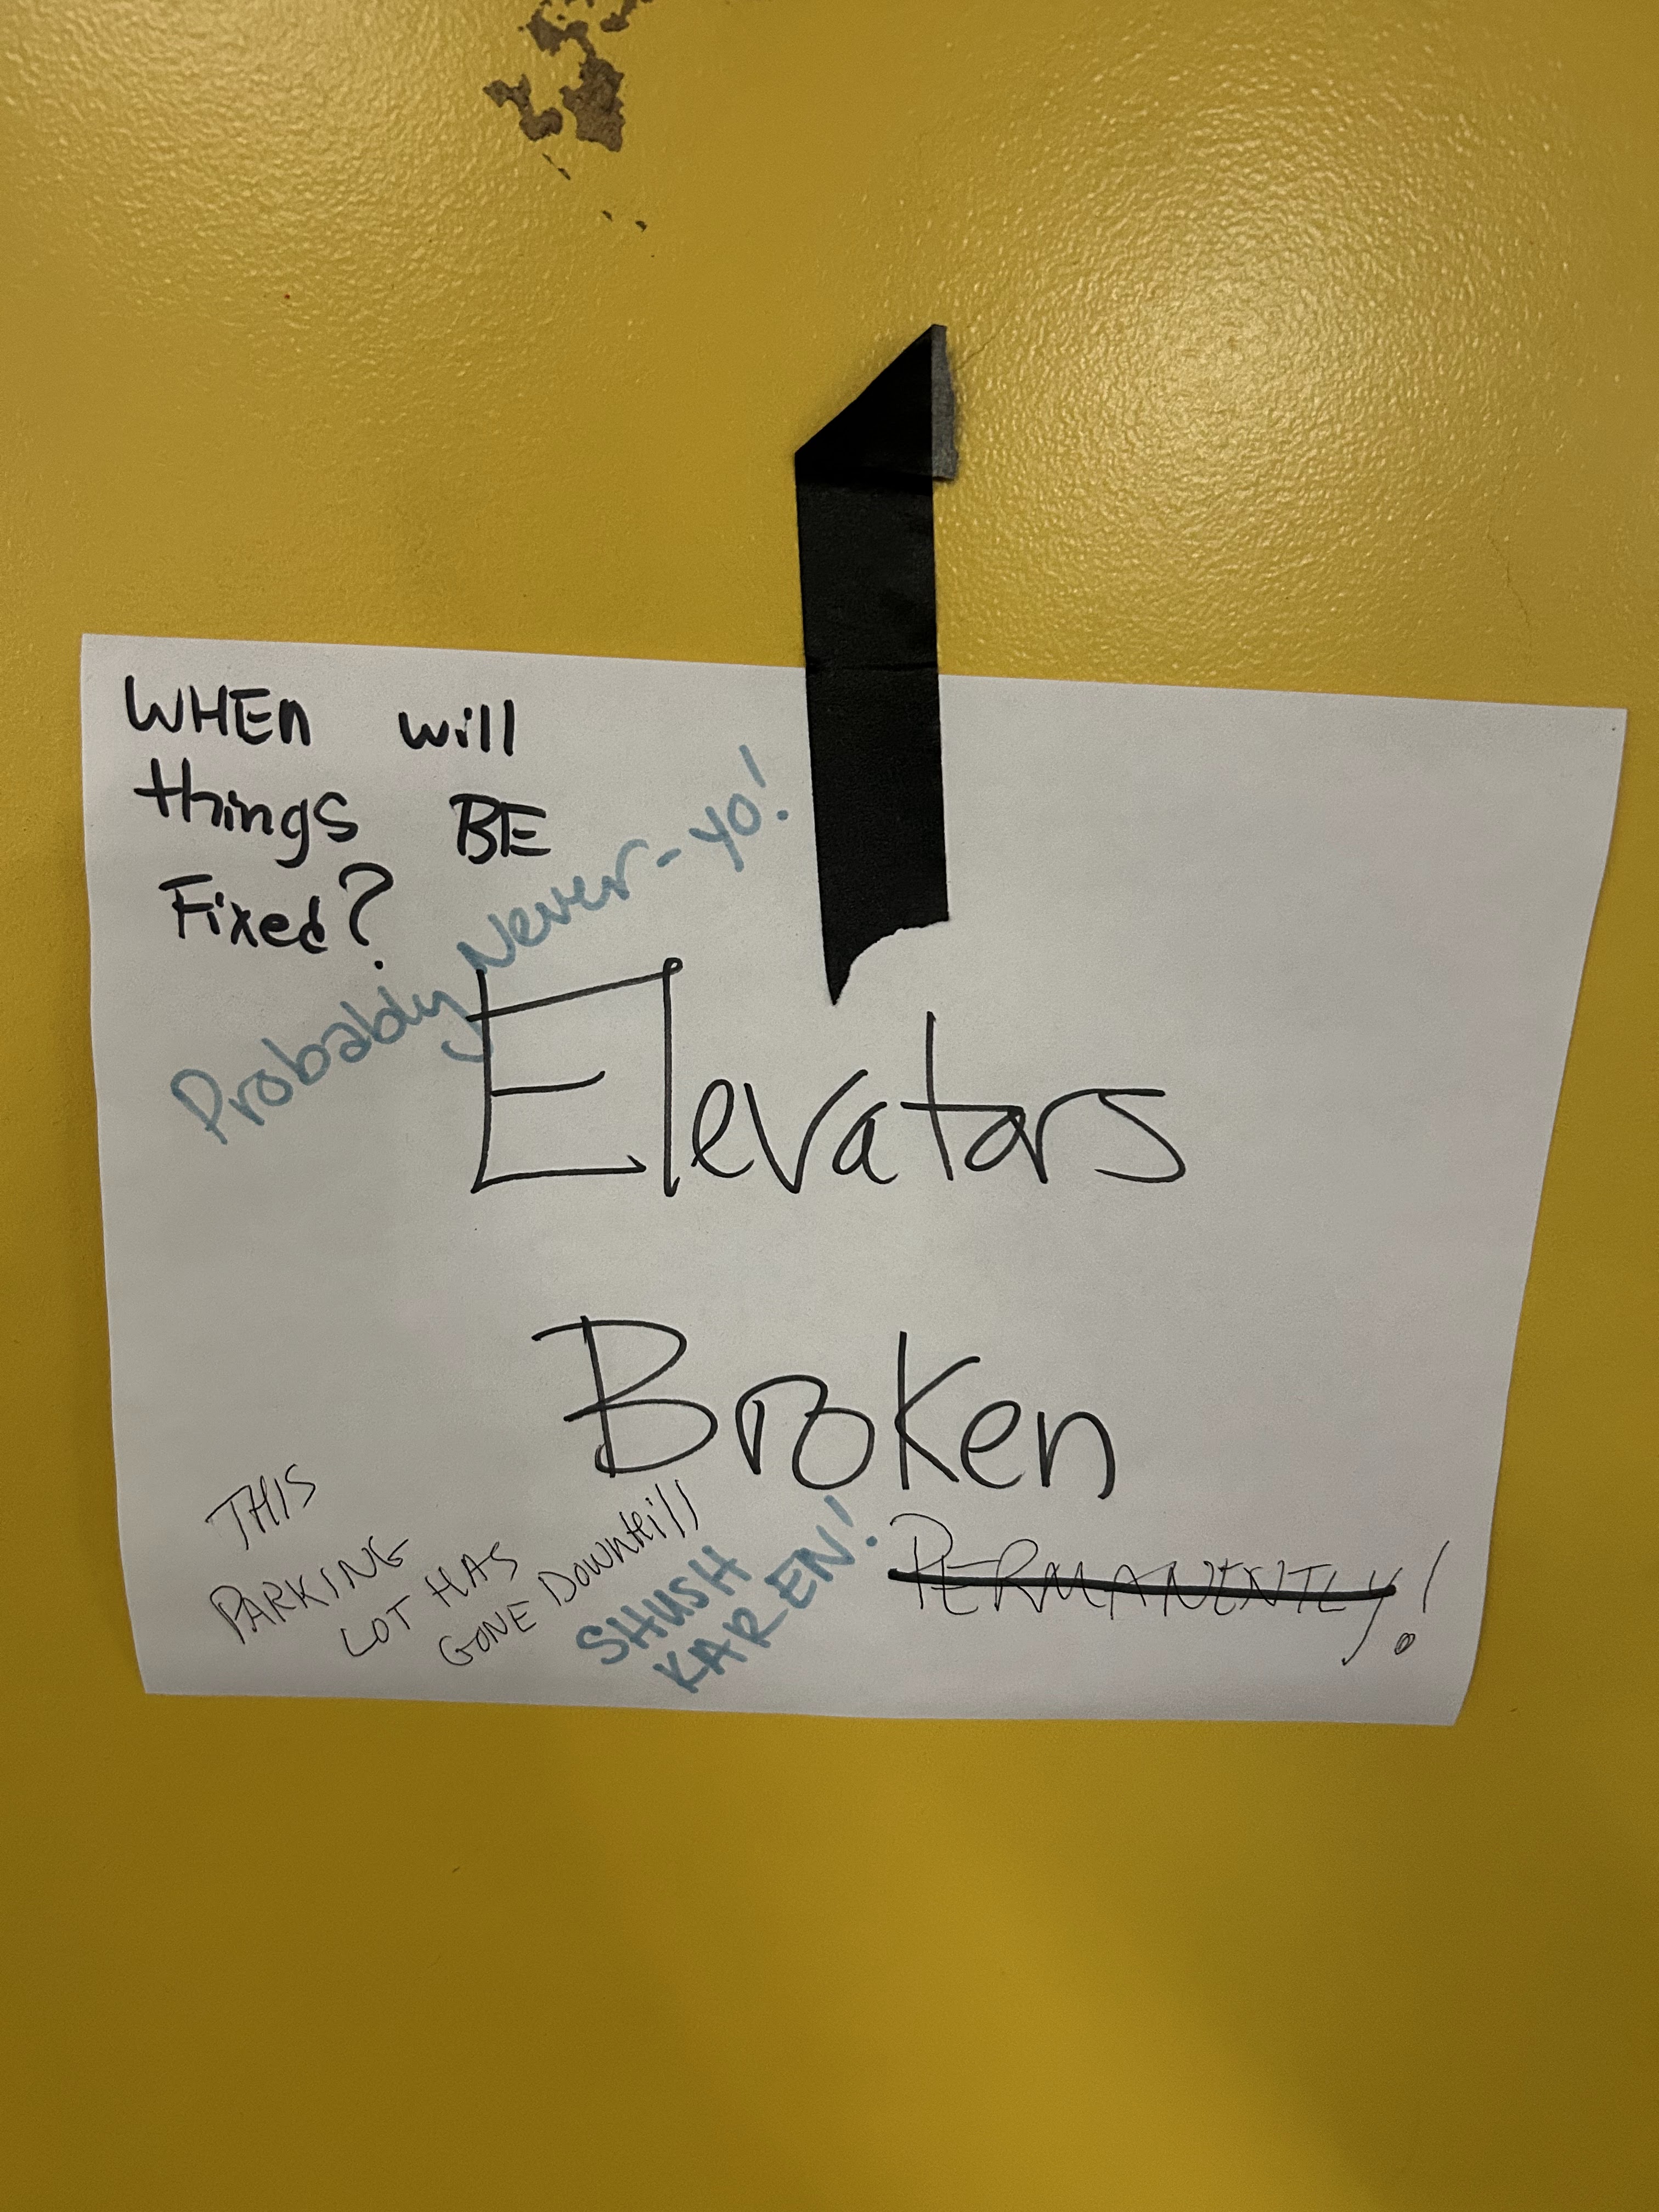 WHEn will
things BE
Fixed?
Probably Never-yo!
Elevators
Broken
PERMANENTLY!
THIS
PARKING
LOT HAS
GONE DOWNHill
SHUSH
KAREN!